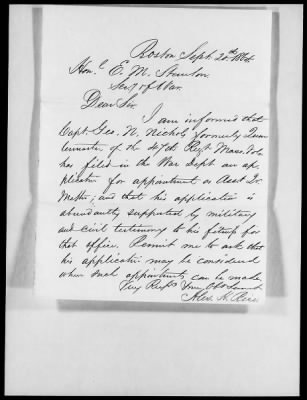 Boston Sept. 20th 1864
Hon. E. M. Stanton
Secy of War.
Dear Sir
I am informed that
Capt. Geo. N. Nichols formerly Quar
termaster of the 47th Regt Mass. Vols
has filed in the War Dept an ap
plication for appointment as Asst Qr.
Master; and that his application is
abundantly supported by military
and civil testimony to his fitness for
that office. Permit me to ask that
his application may be considered
when such appointments can be made
Very Respy Your Obt Servant
Alex. H. Rice